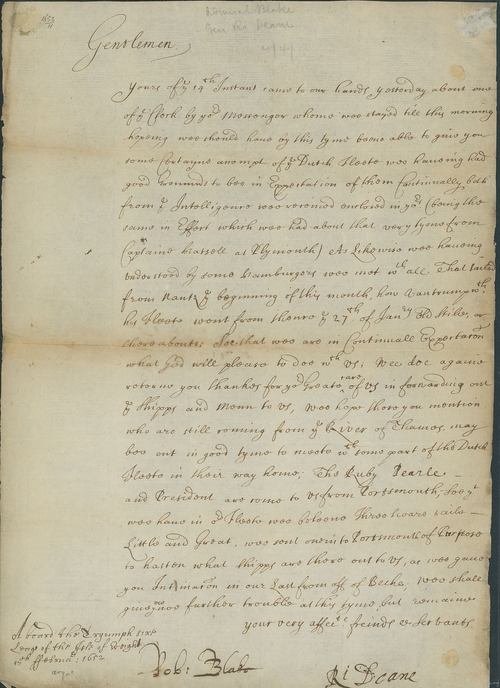 Admiral Blake
Gen Ri Deane
Gentlemen
Yours of ye 14th Instant came to our hands yesterday about one
of ye Clock by yor Messenger whome wee stayed till this morning
hopeing wee should haue by this tyme beene able to giue you
some certayne accompt of ye Dutch Fleete wee haueing had
good Grounds to bee in Expectation of them Continually both
from ye Intelligence wee receiued enclosed in yors (being the
same in Effect which wee had about that very tyme from
Captaine Hatsell at Plymouth) As Likewise wee haueing
vnderstood by some Hamburgers wee met wth all That sailed
from Nantz ye beginning of this month, how Vantrump wth
his Fleete went from thence ye 27th of Janry Old Stile, or
thereabouts; soe that wee are in Continuall Expectacon
what God will please to doe wth vs, Wee doe againe
retorne you thankes for yor Greate care of vs in forwarding out
ye Shipps and Menn to vs, Wee hope those you mention
who are still coming from ye River of Thames, may
bee out in good tyme to meete wth some part of the Dutch
Fleete in their way home; The Ruby Pearle
and President are come to vs from Portsmouth, soe yt
wee haue in or Fleete wee beleeue Threescore saile
Little and Great, wee sent one into Portsmouth of Purpose
to hasten what shipps are there out to vs, as wee gaue
you Intimacon in our Last from off of Beche, Wee shall
giue you noe further trouble at this tyme but remaine
your very affecte freinds & Servants
Aboard the Tryumph sixe
Leags of the Isle of Wight
Febru: 1652
Rob: Blake
Ri Deane